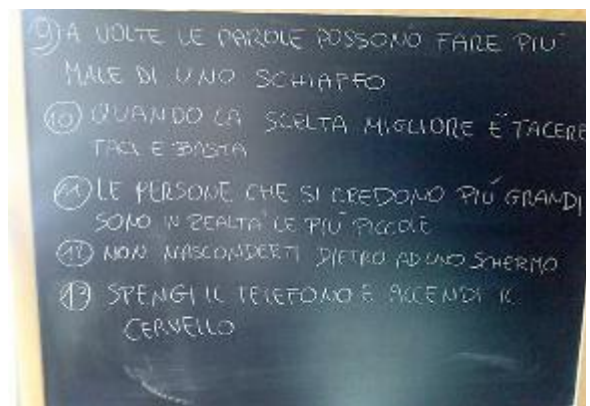 9) A VOLTE LE PAROLE POSSONO FARE PIÙ
MALE DI UNO SCHIAFFO
10) QUANDO LA SCELTA MIGLIORE È TACERE
TACI E BASTA
11) LE PERSONE CHE SI CREDONO PIÙ GRANDI
SONO IN REALTÀ LE PIÙ PICCOLE
12) NON NASCONDERTI DIETRO AD UNO SCHERMO
13) SPENGI IL TELEFONO E ACCENDI IL
CERVELLO